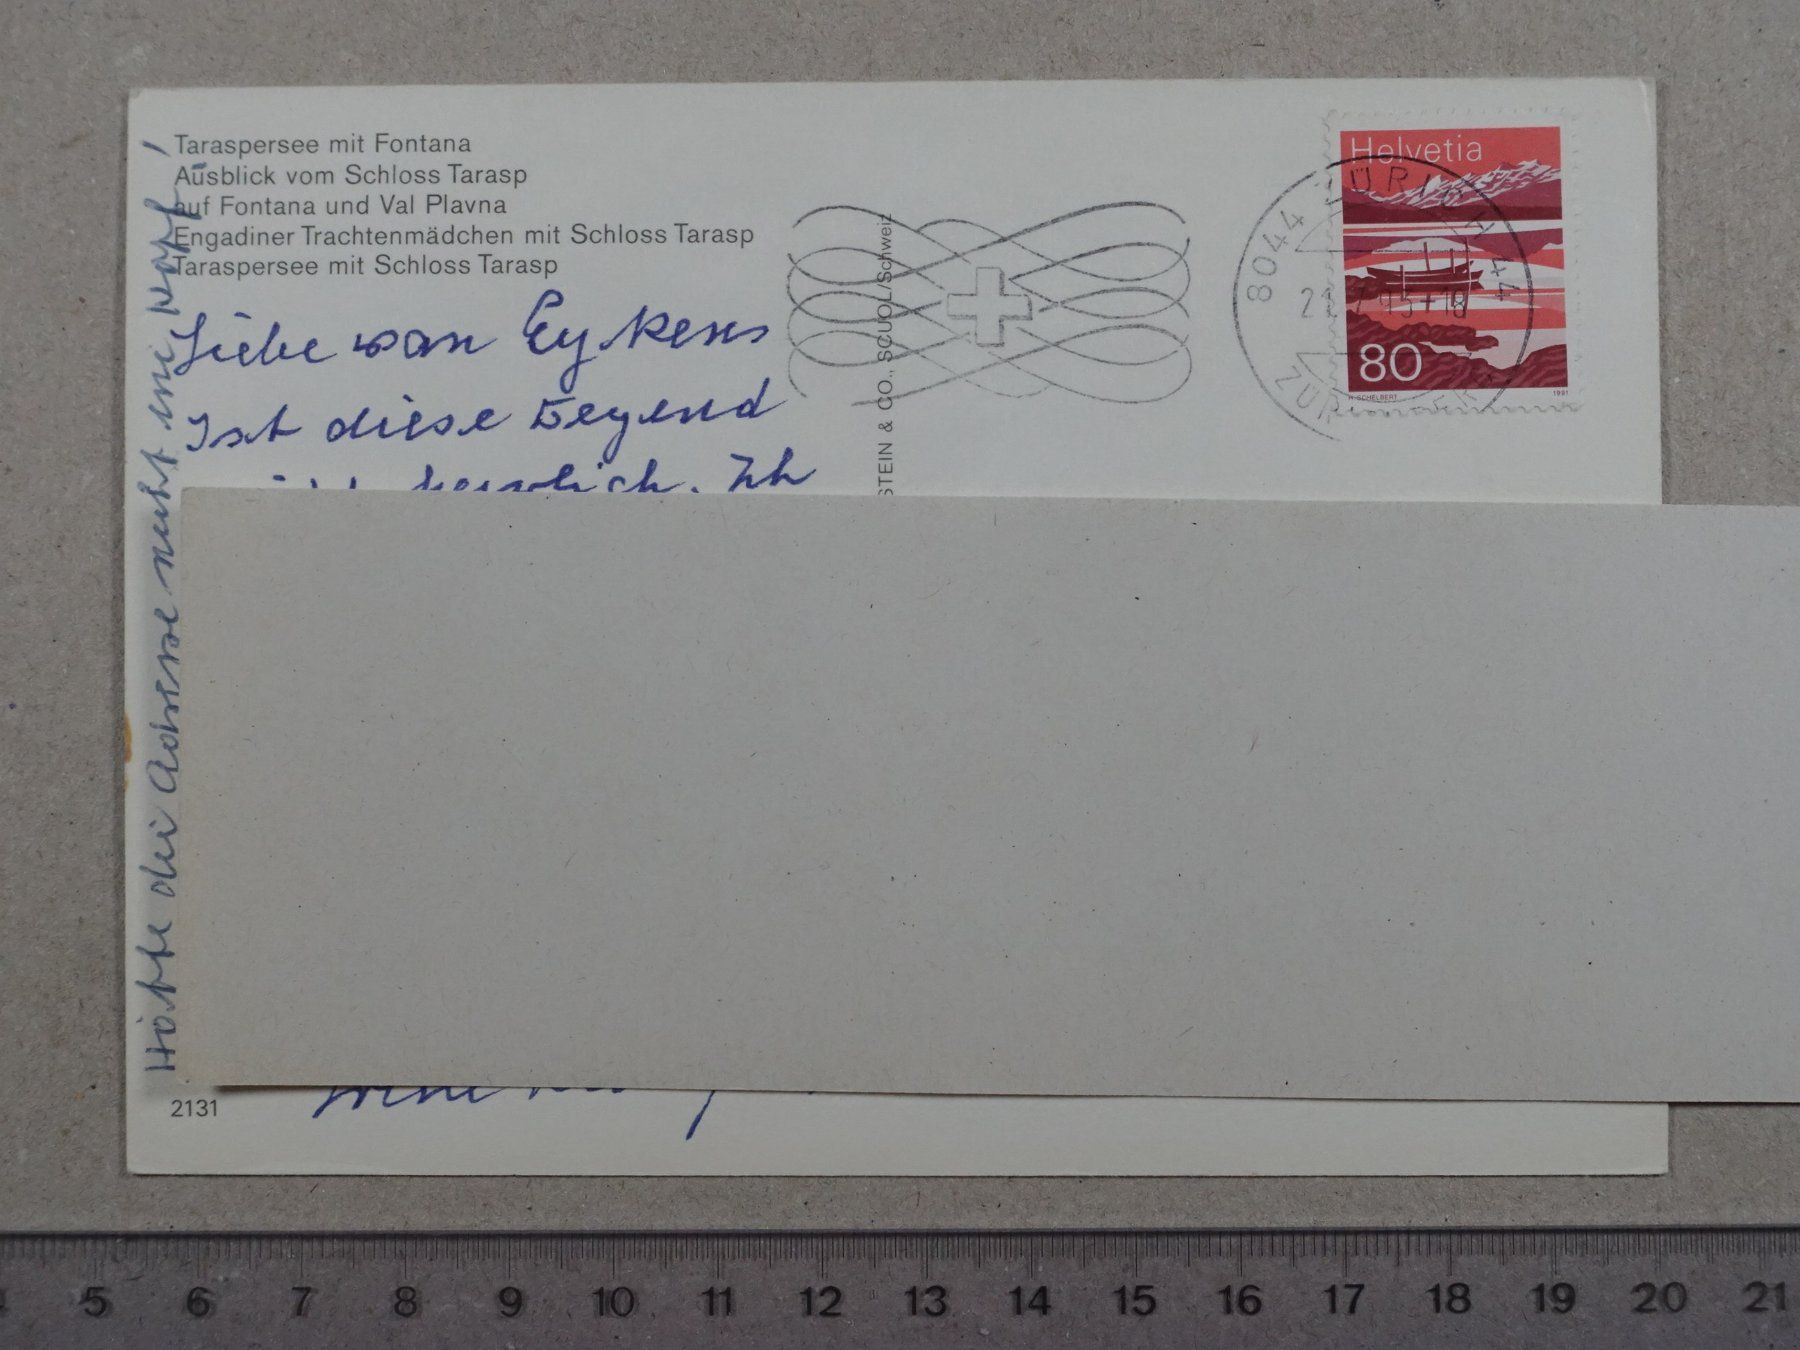 Taraspersee mit Fontana
Ausblick vom Schloss Tarasp
auf Fontana und Val Plavna
Engadiner Trachtenmädchen mit Schloss Tarasp
Taraspersee mit Schloss Tarasp
Liebe van Eykens
Ist diese Gegend
nicht herrlich. Ich
Hätte die Adresse nicht im Kopf!
STEIN & CO., SCUOL/Schweiz
Helvetia
80
H. SCHELBERT
1991
8044 ZÜRICH 44
2131
5 6 7 8 9 10 11 12 13 14 15 16 17 18 19 20 21